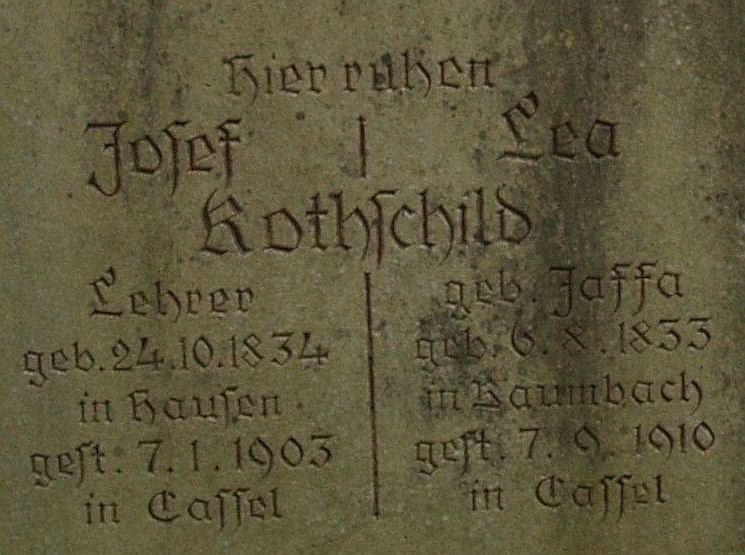 Hier ruhen
Josef | Lea
Rothschild
Lehrer
geb. 24.10.1834
in Hausen
gest. 7.1.1903
in Cassel
geb. Jaffa
geb. 6.8.1833
in Baumbach
gest. 7.9.1910
in Cassel